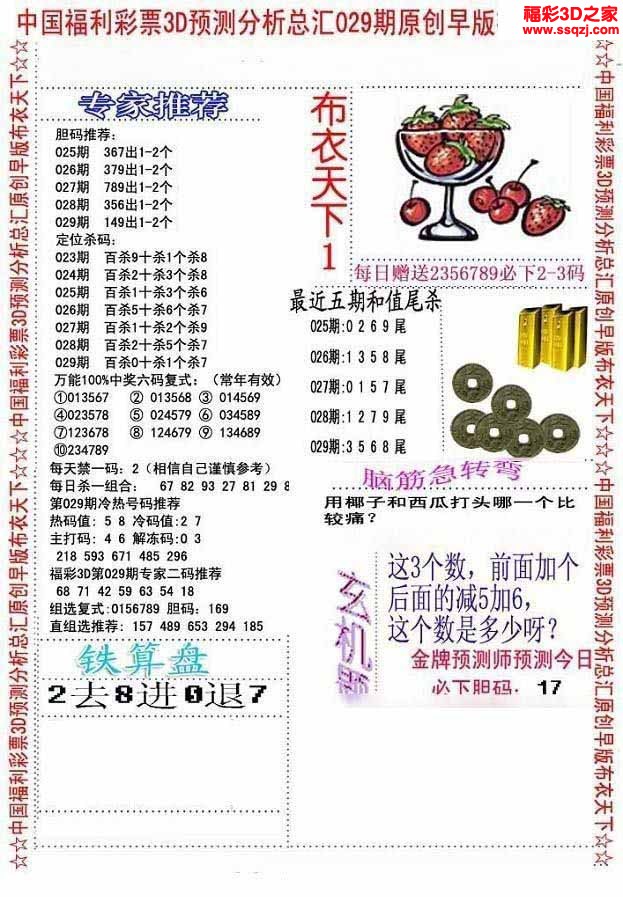 中国福利彩票3D预测分析总汇029期原创早版
福彩3D之家
www.ssqzj.com
☆☆中国福利彩票3D预测分析总汇原创早版布衣天下☆☆
专家推荐
胆码推荐:
025期 367出1-2个
026期 379出1-2个
027期 789出1-2个
028期 356出1-2个
029期 149出1-2个
定位杀码:
023期 百杀9十杀1个杀8
024期 百杀2十杀3个杀6
025期 百杀1十杀3个杀6
026期 百杀5十杀6个杀7
027期 百杀1十杀2个杀9
028期 百杀2十杀5个杀7
029期 百杀0十杀1个杀7
万能100%中奖六码复式:(常年有效)
①013567 ② 013568 ③ 014569
④023578 ⑤ 024579 ⑥ 034589
⑦123678 ⑧ 124679 ⑨ 134689
⑩234789
每天禁一码: 2(相信自己谨慎参考)
每日杀一组合: 67 82 93 27 81 29 8
第029期冷热号码推荐
热码值: 5 8 冷码值:2 7
主打码: 4 6 解冻码:0 3
218 593 671 485 296
福彩3D第029期专家二码推荐
68 71 42 59 63 54 18
组选复式:0156789 胆码: 169
直组选推荐: 157 489 653 294 185
铁算盘
2去8进0退7
布衣天下1
每日赠送2356789必下2-3码
最近五期和值尾杀
025期:0 2 6 9 尾
026期:1 3 5 8 尾
027期:0 1 5 7 尾
028期:1 2 7 9 尾
029期:3 5 6 8 尾
脑筋急转弯
用椰子和西瓜打头哪一个比
较痛?
玄机
这3个数,前面加个
后面的减5加6,
这个数是多少呀?
金牌预测师预测今日
必下胆码. 17
☆☆中国福利彩票3D预测分析总汇原创早版布衣天下☆☆